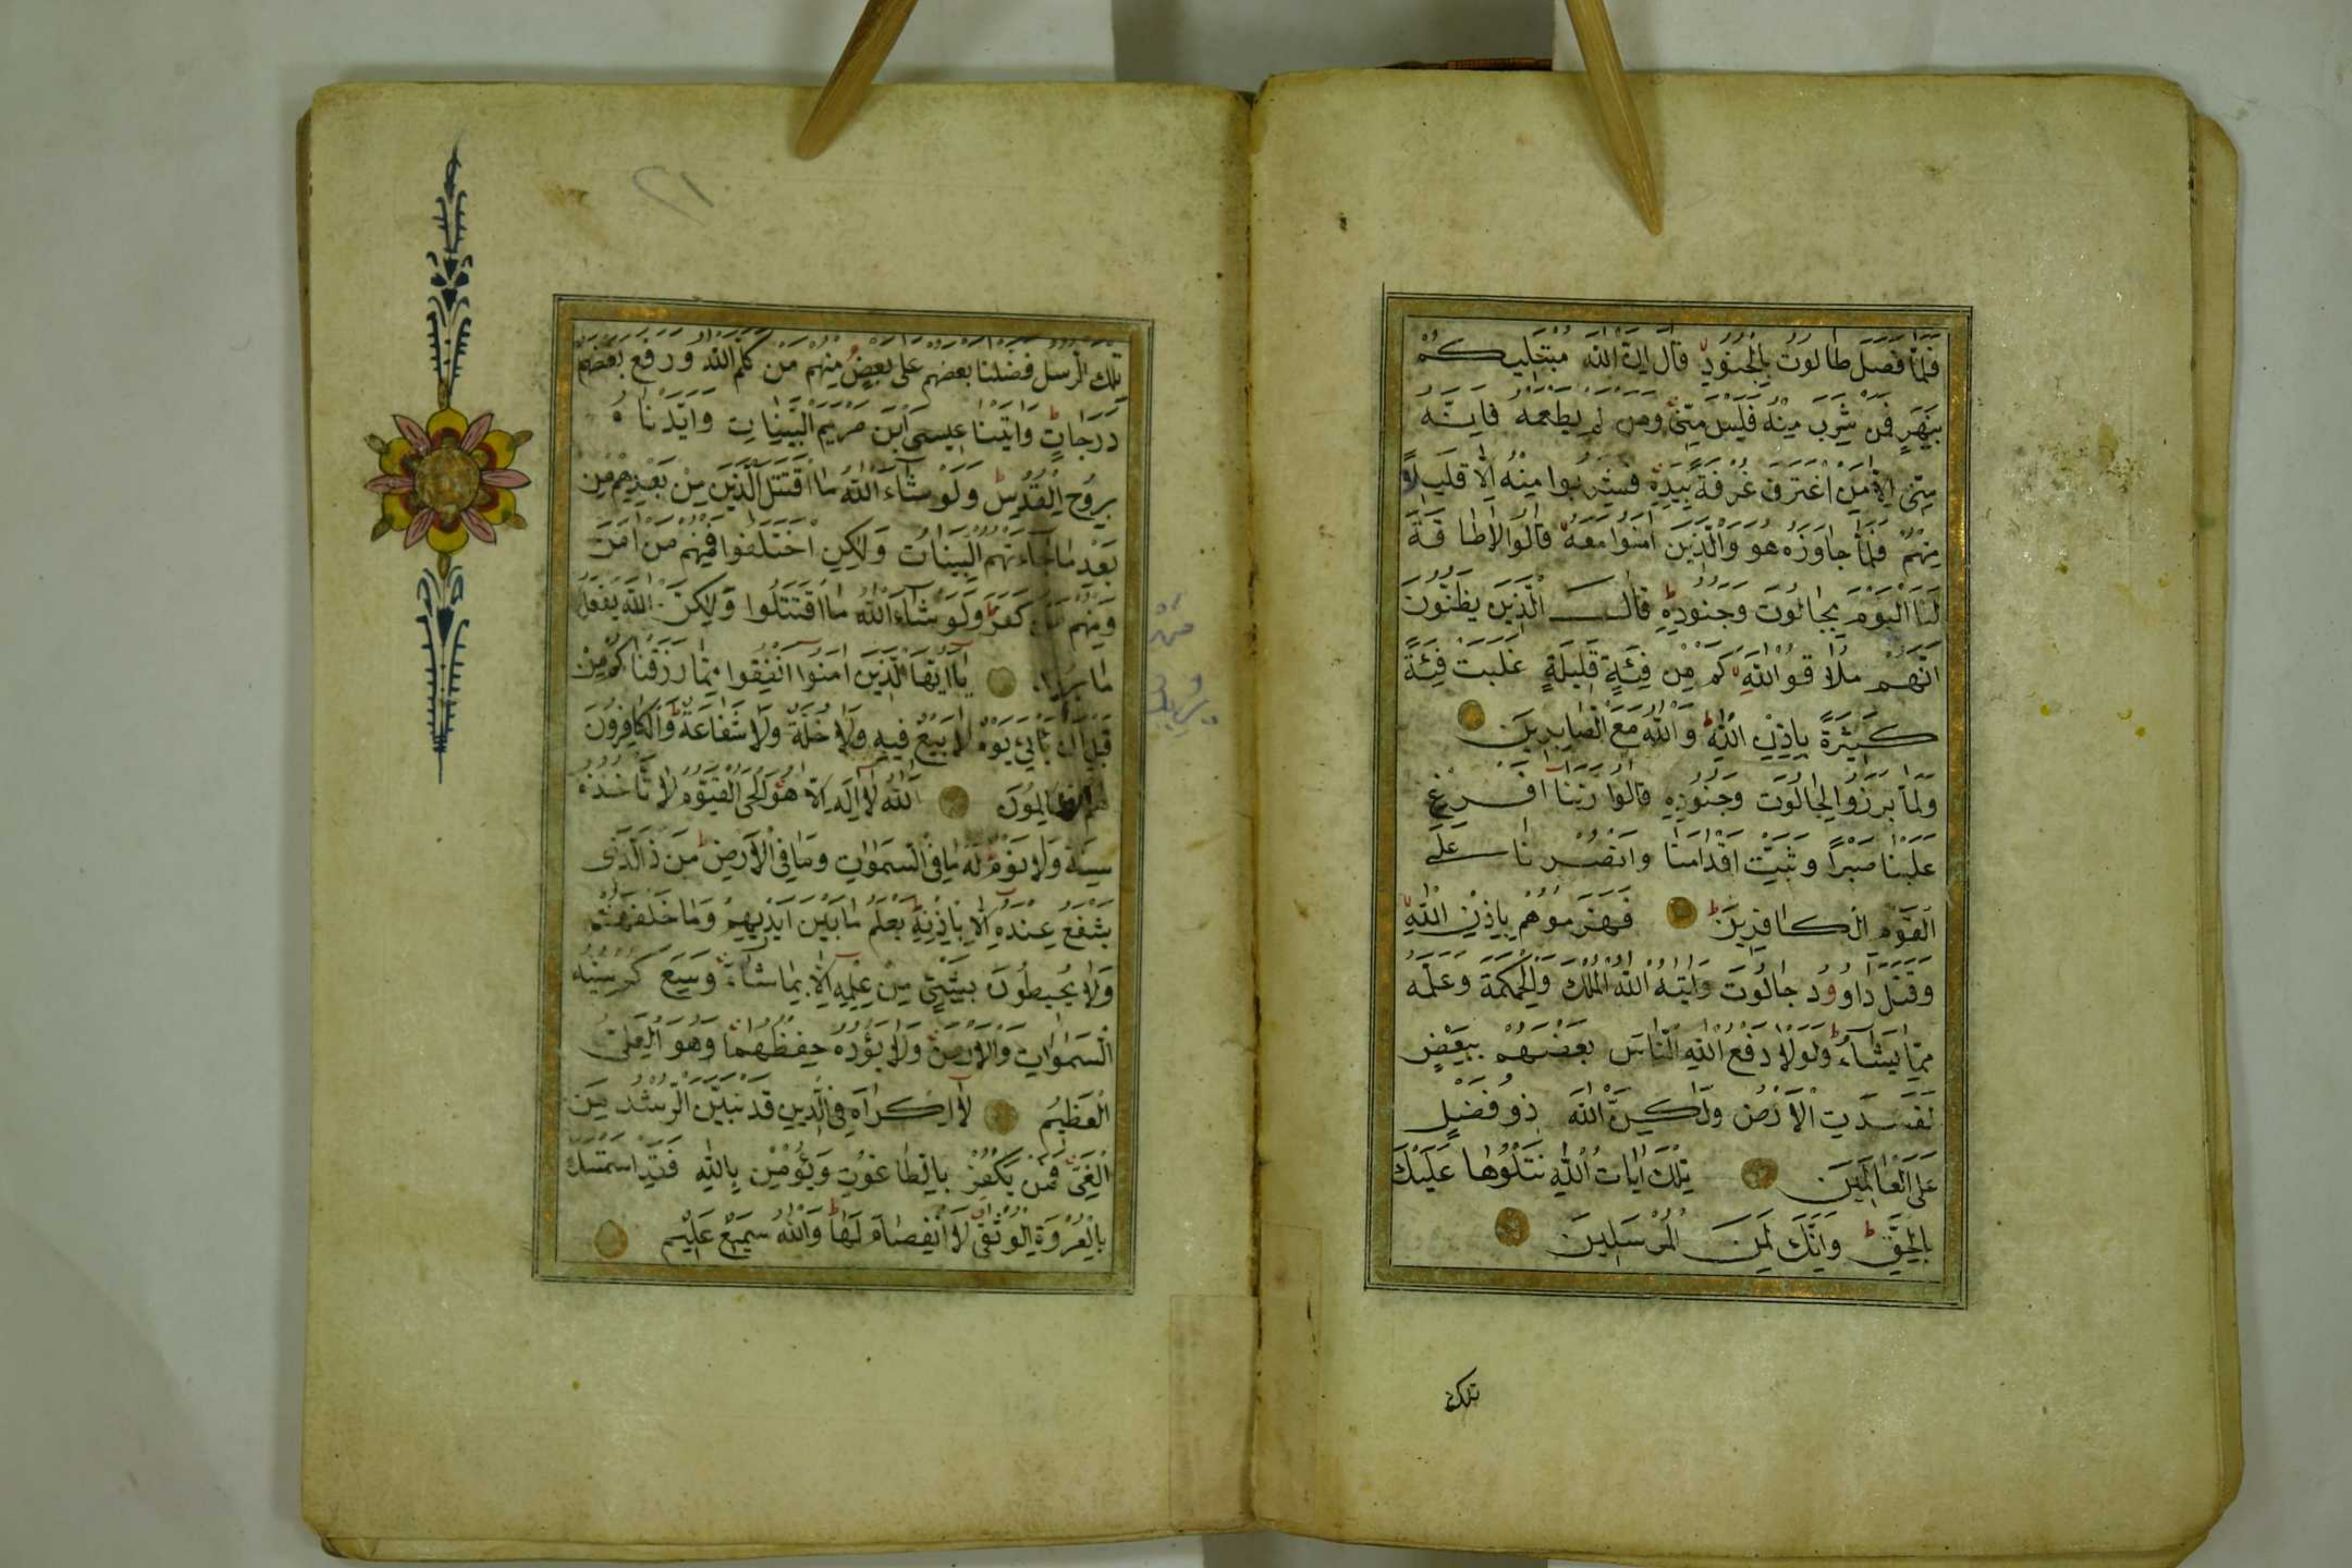 فَلَمَّا فَصَلَ طَالُوتُ بِالْجُنُودِ قَالَ إِنَّ اللَّهَ مُبْتَلِيكُمْ
بِنَهَرٍ فَمَنْ شَرِبَ مِنْهُ فَلَيْسَ مِنِّي وَمَنْ لَمْ يَطْعَمْهُ فَإِنَّهُ
مِنِّي إِلَّا مَنِ اغْتَرَفَ غُرْفَةً بِيَدِهِ فَشَرِبُوا مِنْهُ إِلَّا قَلِيلًا
مِنْهُمْ فَلَمَّا جَاوَزَهُ هُوَ وَالَّذِينَ آمَنُوا مَعَهُ قَالُوا لَا طَاقَةَ
لَنَا الْيَوْمَ بِجَالُوتَ وَجُنُودِهِ قَالَ الَّذِينَ يَظُنُّونَ
أَنَّهُمْ مُلَاقُو اللَّهِ كَمْ مِنْ فِئَةٍ قَلِيلَةٍ غَلَبَتْ فِئَةً
كَثِيرَةً بِإِذْنِ اللَّهِ وَاللَّهُ مَعَ الصَّابِرِينَ
وَلَمَّا بَرَزُوا لِجَالُوتَ وَجُنُودِهِ قَالُوا رَبَّنَا أَفْرِغْ
عَلَيْنَا صَبْرًا وَثَبِّتْ أَقْدَامَنَا وَانْصُرْنَا عَلَى
الْقَوْمِ الْكَافِرِينَ فَهَزَمُوهُمْ بِإِذْنِ اللَّهِ
وَقَتَلَ دَاوُودُ جَالُوتَ وَآتَيهُ اللَّهُ الْمُلْكَ وَالْحِكْمَةَ وَعَلَّمَهُ
مِمَّا يَشَاءُ وَلَوْلَا دَفْعُ اللَّهِ النَّاسَ بَعْضَهُمْ بِبَعْضٍ
لَفَسَدَتِ الْأَرْضُ وَلَكِنَّ اللَّهَ ذُو فَضْلٍ
عَلَى الْعَالَمِينَ تِلْكَ آيَاتُ اللَّهِ نَتْلُوهَا عَلَيْكَ
بِالْحَقِّ وَإِنَّكَ لَمِنَ الْمُرْسَلِينَ
تلك
١٢
تِلْكَ الرُّسُلُ فَضَّلْنَا بَعْضَهُمْ عَلَى بَعْضٍ مِنْهُمْ مَنْ كَلَّمَ اللَّهُ وَرَفَعَ بَعْضَهُمْ
دَرَجَاتٍ وَآتَيْنَا عِيسَى ابْنَ مَرْيَمَ الْبَيِّنَاتِ وَأَيَّدْنَاهُ
بِرُوحِ الْقُدُسِ وَلَوْ شَاءَ اللَّهُ مَا اقْتَتَلَ الَّذِينَ مِنْ بَعْدِهِمْ مِنْ
بَعْدِ مَا جَاءَتْهُمُ الْبَيِّنَاتُ وَلَكِنِ اخْتَلَفُوا فَمِنْهُمْ مَنْ آمَنَ
وَمِنْهُمْ مَنْ كَفَرَ وَلَوْ شَاءَ اللَّهُ مَا اقْتَتَلُوا وَلَكِنَّ اللَّهَ يَفْعَلُ
مَا يُرِيدُ يَا أَيُّهَا الَّذِينَ آمَنُوا أَنْفِقُوا مِمَّا رَزَقْنَاكُمْ مِنْ
قَبْلِ أَنْ يَأْتِيَ يَوْمٌ لَا بَيْعٌ فِيهِ وَلَا خُلَّةٌ وَلَا شَفَاعَةٌ وَالْكَافِرُونَ
هُمُ الظَّالِمُونَ اللَّهُ لَا إِلَهَ إِلَّا هُوَ الْحَيُّ الْقَيُّومُ لَا تَأْخُذُهُ
سِنَةٌ وَلَا نَوْمٌ لَهُ مَا فِي السَّمَوَاتِ وَمَا فِي الْأَرْضِ مَنْ ذَا الَّذِي
يَشْفَعُ عِنْدَهُ إِلَّا بِإِذْنِهِ يَعْلَمُ مَا بَيْنَ أَيْدِيهِمْ وَمَا خَلْفَهُمْ
وَلَا يُحِيطُونَ بِشَيْءٍ مِنْ عِلْمِهِ إِلَّا بِمَا شَاءَ وَسِعَ كُرْسِيُّهُ
السَّمَوَاتِ وَالْأَرْضَ وَلَا يَؤُدُهُ حِفْظُهُمَا وَهُوَ الْعَلِيُّ
الْعَظِيمُ لَا إِكْرَاهَ فِي الدِّينِ قَدْ تَبَيَّنَ الرُّشْدُ مِنَ
الْغَيِّ فَمَنْ يَكْفُرْ بِالطَّاغُوتِ وَيُؤْمِنْ بِاللَّهِ فَقَدِ اسْتَمْسَكَ
بِالْعُرْوَةِ الْوُثْقَى لَا انْفِصَامَ لَهَا وَاللَّهُ سَمِيعٌ عَلِيمٌ